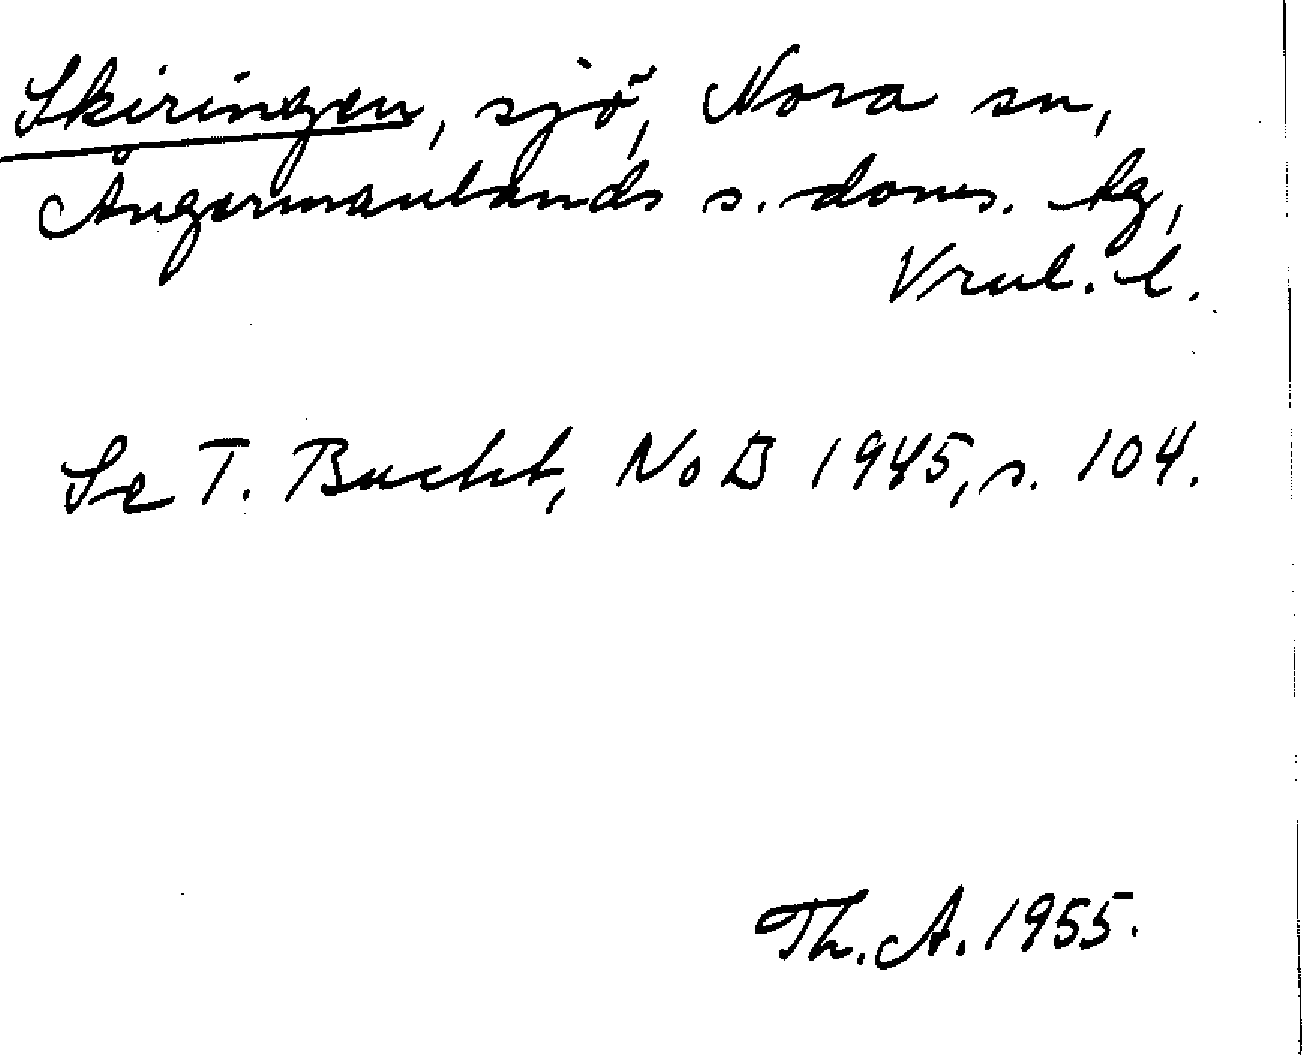 Skiringen, sjö, Nora sn,
Ångermanlands s. doms. hg,
Vrnl. l.
Se T. Bucht, NoB 1945, s. 104.
Th. A. 1955.